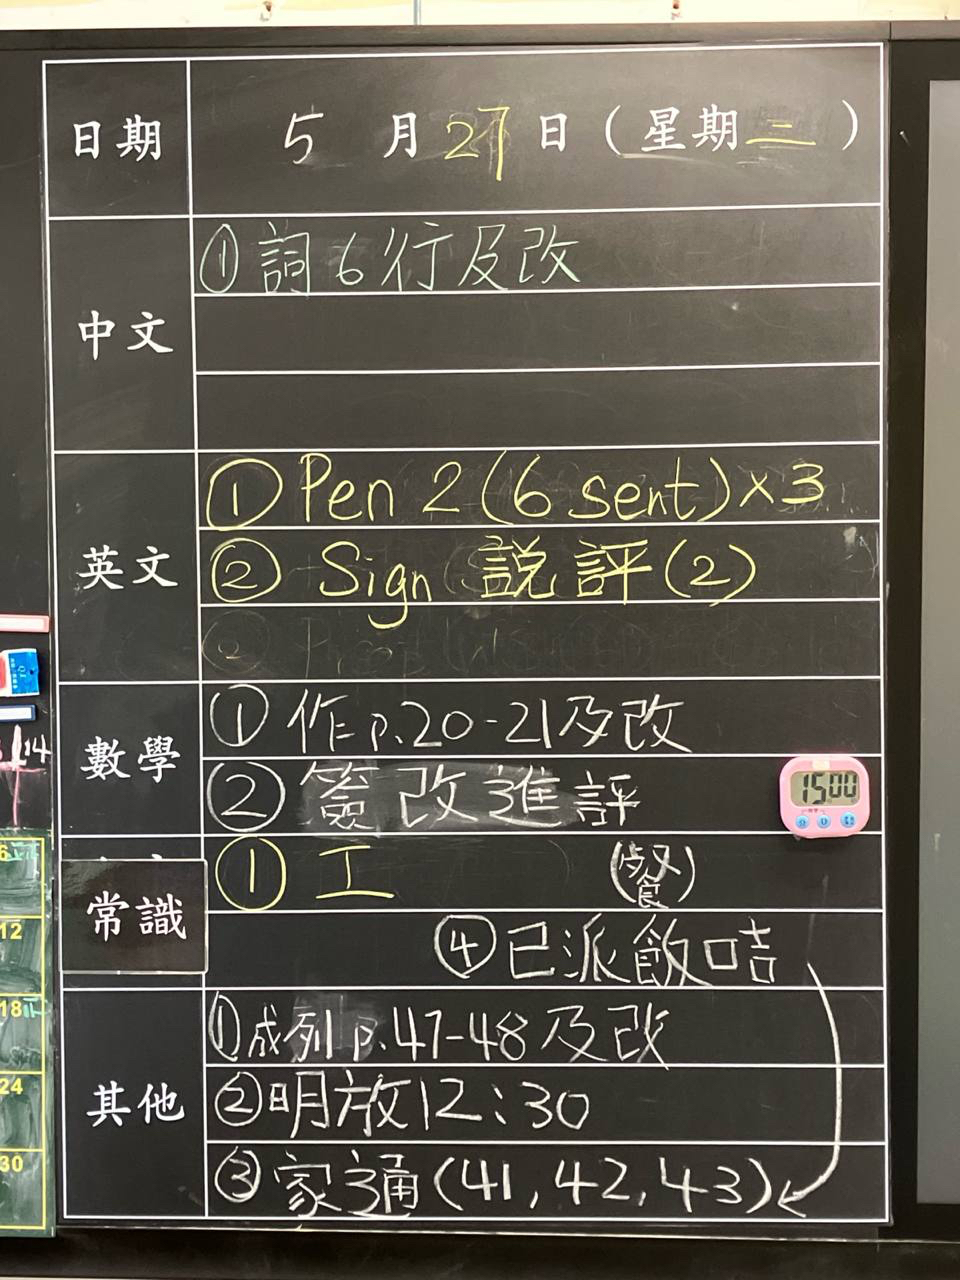 日期 5 月 27 日 ( 星期二 )
中文
① 詞 6 行及改
英文
① Pen 2 (6 sent) x 3
② Sign 説評 (2)
數學
① 作 p.20-21及改
② 簽改進評
15:00
常識
① 工 (餐)
④ 已派飯咭
其他
① 成列 p.47-48 及改
② 明放 12:30
③ 家通 (41, 42, 43)
14
6
12
18
24
30